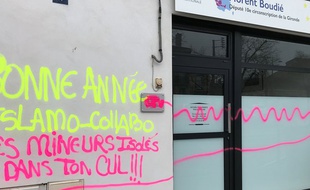 Florent Boudié
Député 10e circonscription de la Gironde
BONNE ANNÉE
ISLAMO-COLLABO
LES MINEURS ISOLÉS
DANS TON CUL!!!